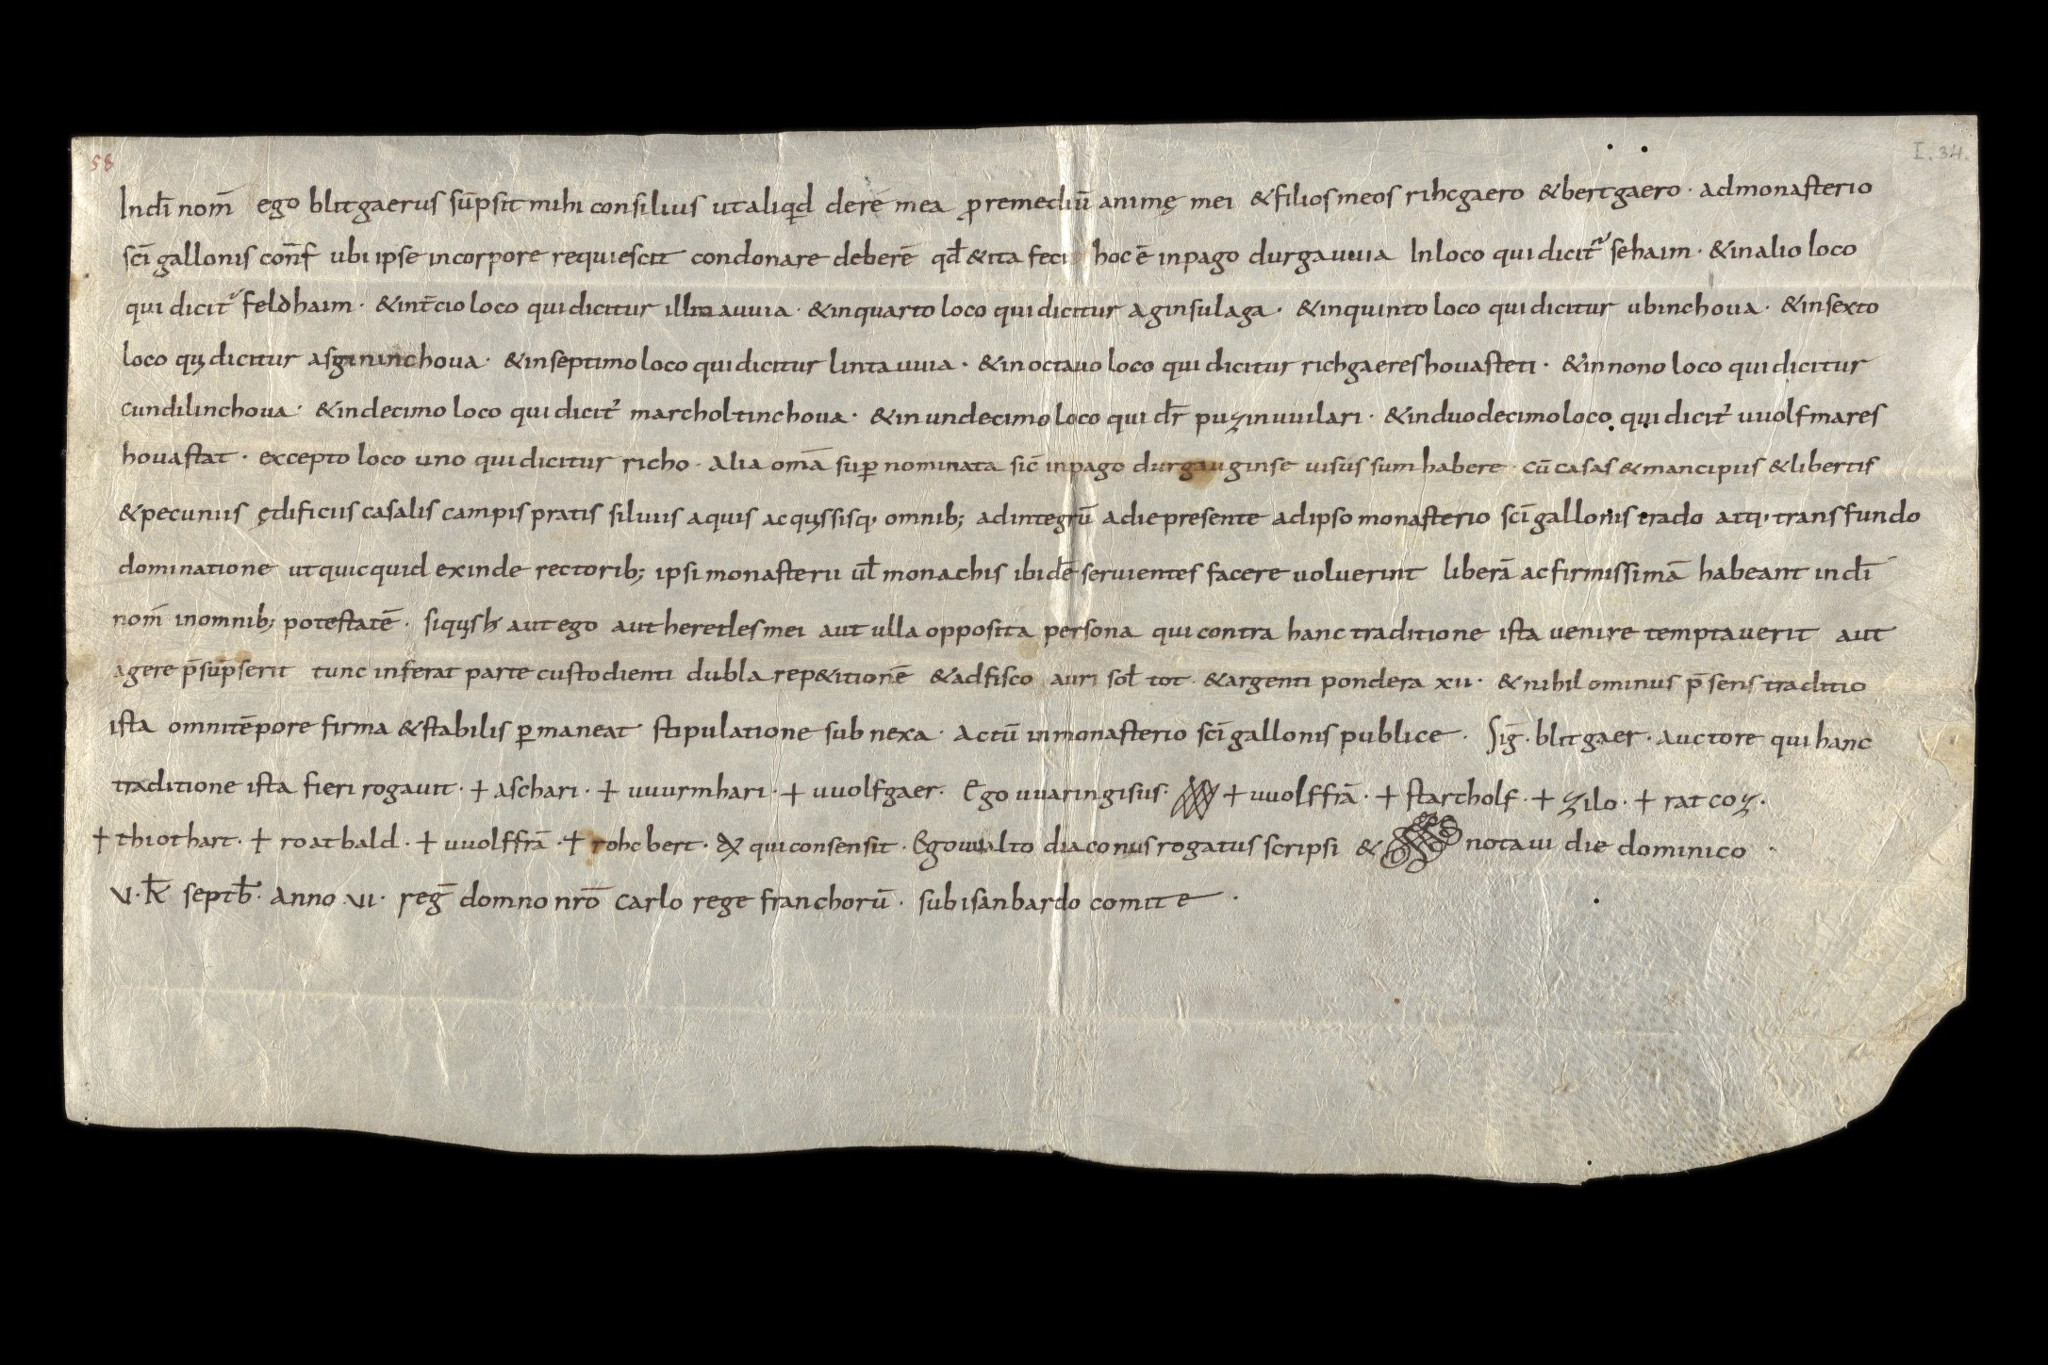 58
I. 34.
In dī nom̄ ego blitgaerus sūpsit mihi consilius ut aliqd de rē mea p remediū animę mei & filios meos rihcgaero & bertgaero · ad monasterio
scī gallonis conf̄ ubi ipse in corpore requiescit condonare deberē qd̄ & ita feci hoc ē in pago durgauuia In loco qui dicit᷑ sehaim · & in alio loco
qui dicit᷑ feldhaim · & in t̄cio loco qui dicitur illinauuia · & in quarto loco qui dicitur aginsulaga · & in quinto loco qui dicitur ubinchoua · & in sexto
loco qui dicitur asgininchoua · & in septimo loco qui dicitur lintauuia · & in octauo loco qui dicitur richgaereshouasteti · & in nono loco qui dicitur
cundilinchoua · & in decimo loco qui dicit᷑ marcholtinchoua · & in undecimo loco qui dr̄ puzinuuilari · & in duodecimo loco qui dicit᷑ uuolfmares
houastat · excepto loco uno qui dicitur richo · alia omā sup nominata sic̄ in pago durgauginse uisus sum habere · cū casas & mancipiis & libertis
& pecuniis ędificiis casalis campis pratis siluiis aquis acqyssisq, omnib; ad integrū a die presente ad ipso monasterio scī gallonis trado atq, transfundo
dominatione ut quicquid exinde rectorib; ipsi monasterii ul̄ monachis ibidē seruientes facere uoluerint liberā ac firmissimā habeant in dī
nom̄ in omnib; potestatē · si qys h aut ego aut heredes mei aut ulla opposita persona qui contra hanc traditione ista uenire temptauerit aut
agere p̄sūpserit tunc inferat parte custodienti dubla rep&itionē & ad fisco auri sol̄ tot & argenti pondera xii · & nihilominus p̄sens traditio
ista omni tēpore firma & stabilis pmaneat stipulatione subnexa · actū in monasterio scī gallonis publice · Siḡ · blitgaer · auctore qui hanc
traditione ista fieri rogauit · + aschari · + uuurmhari · + uuolfgaer · Ego uuaringisus · + uuolffrā · + starcholf · + zilo · + ratcoz ·
+ thiothart · + roatbald · + uuolffrā · + rohcbert · qui consensit · Ego uualto diaconus rogatus scripsi & notaui die dominico ·
V · kł septb̄ · anno · VI · reg̃ domno nrō carlo rege franchorū · sub isanbardo comite ·